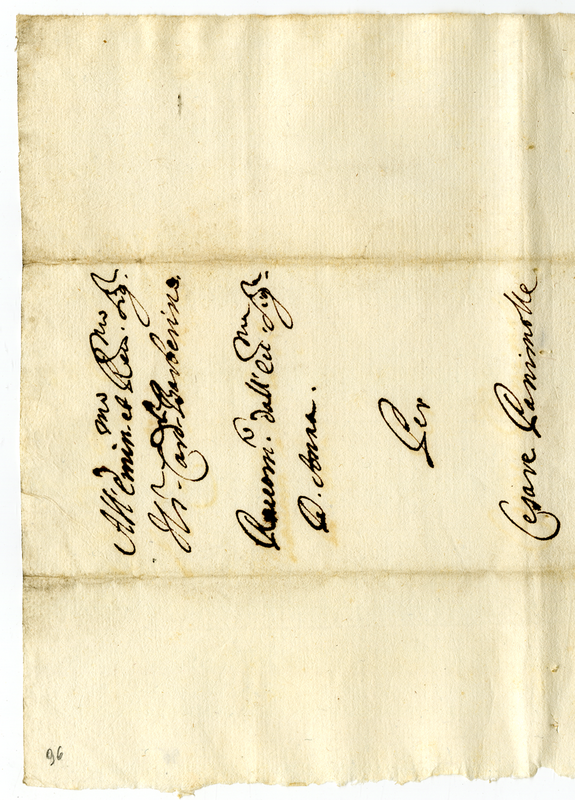 All' Emin.mo et Reu.mo Sig.r
Il S.r Card. Barberino.
Raccom.to dall' Ecc.ma Sig.ra
D. Anna.
Per
Cesare Panimolle
96